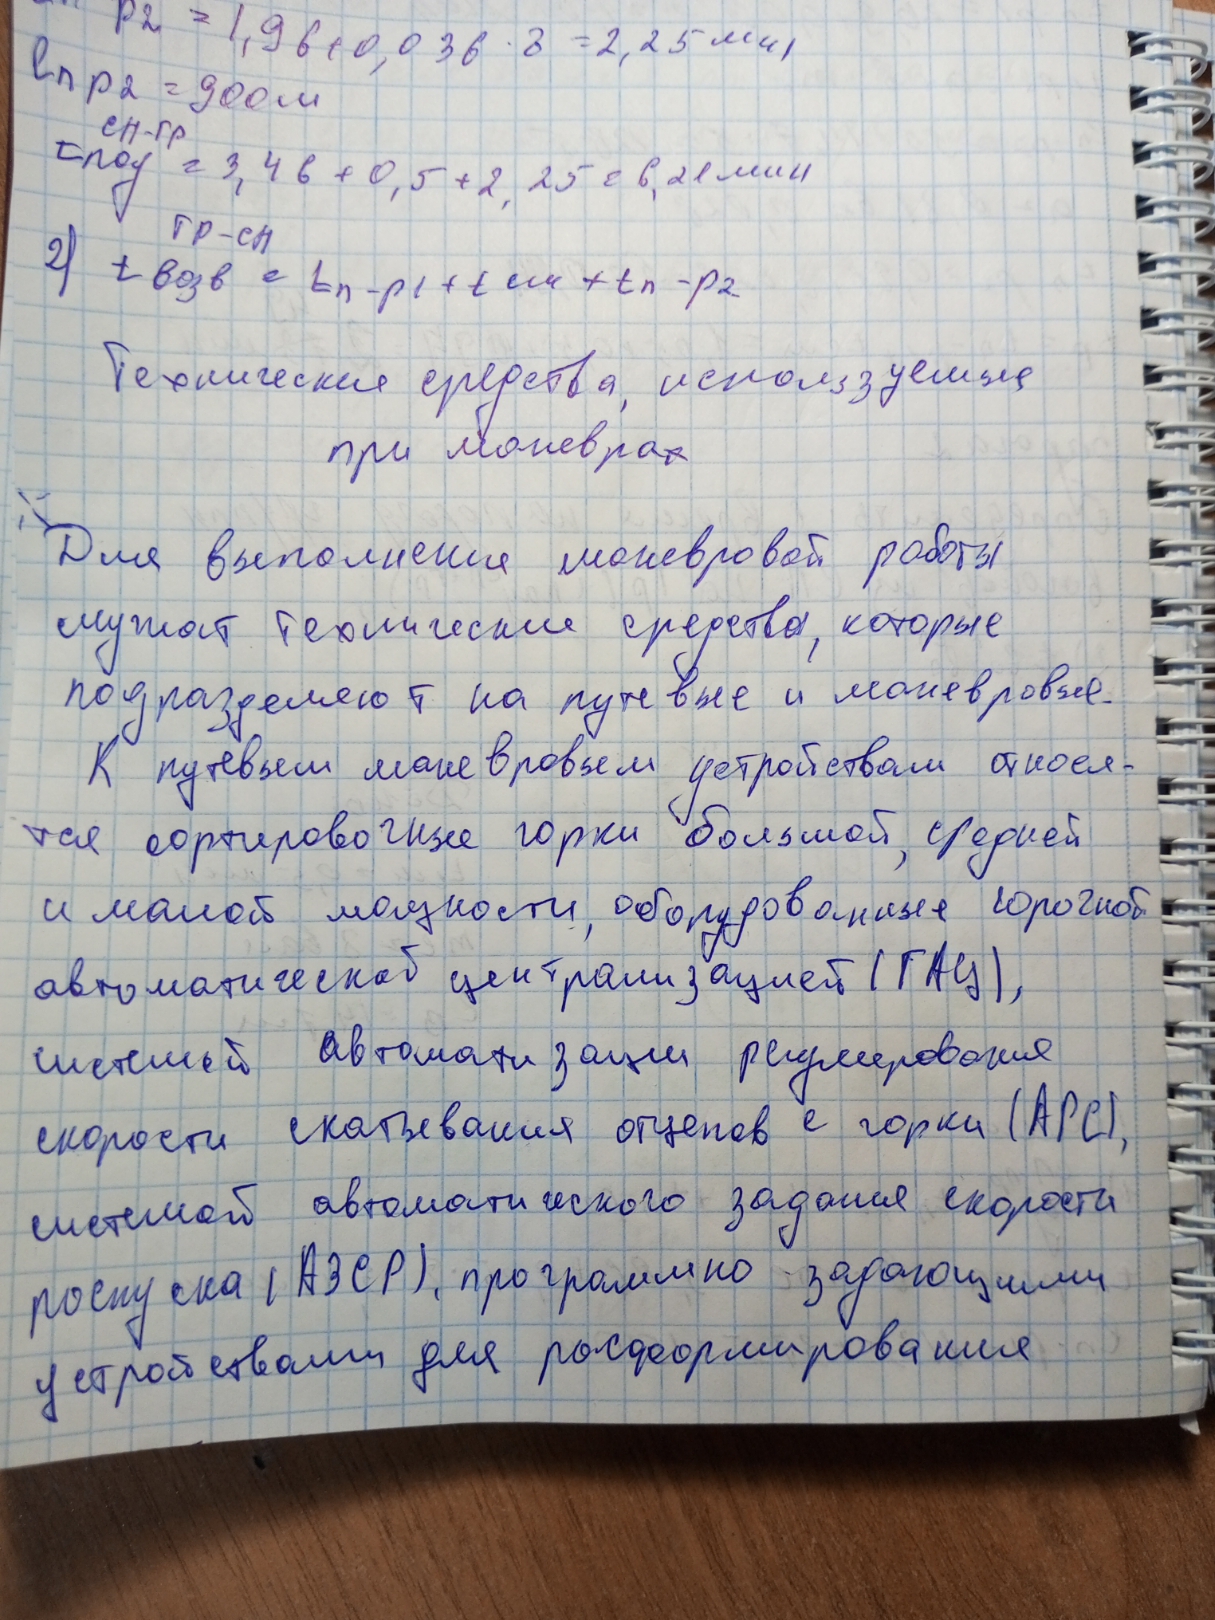 р2 = 1,96+0,036·8 = 2,25 мин
lп р2 = 900м
tпод сн-гр = 3,46 + 0,5 + 2,25 = 6,21 мин
2) t возв гр-сн = tп-р1 + t см + tп-р2
Технические средства, используемые
при маневрах
Для выполнения маневровой работы
служат технические средства, которые
подразделяют на путевые и маневровые.
К путевым маневровым устройствам относя-
тся сортировочные горки большой, средней
и малой мощности, оборудованные горочной
автоматической централизацией (ГАЦ),
системой автоматизации регулирования
скорости скатывания отцепов с горки (АРС),
системой автоматического задания скорости
роспуска (АЗСР), программно задающими
устройствами для расформирования